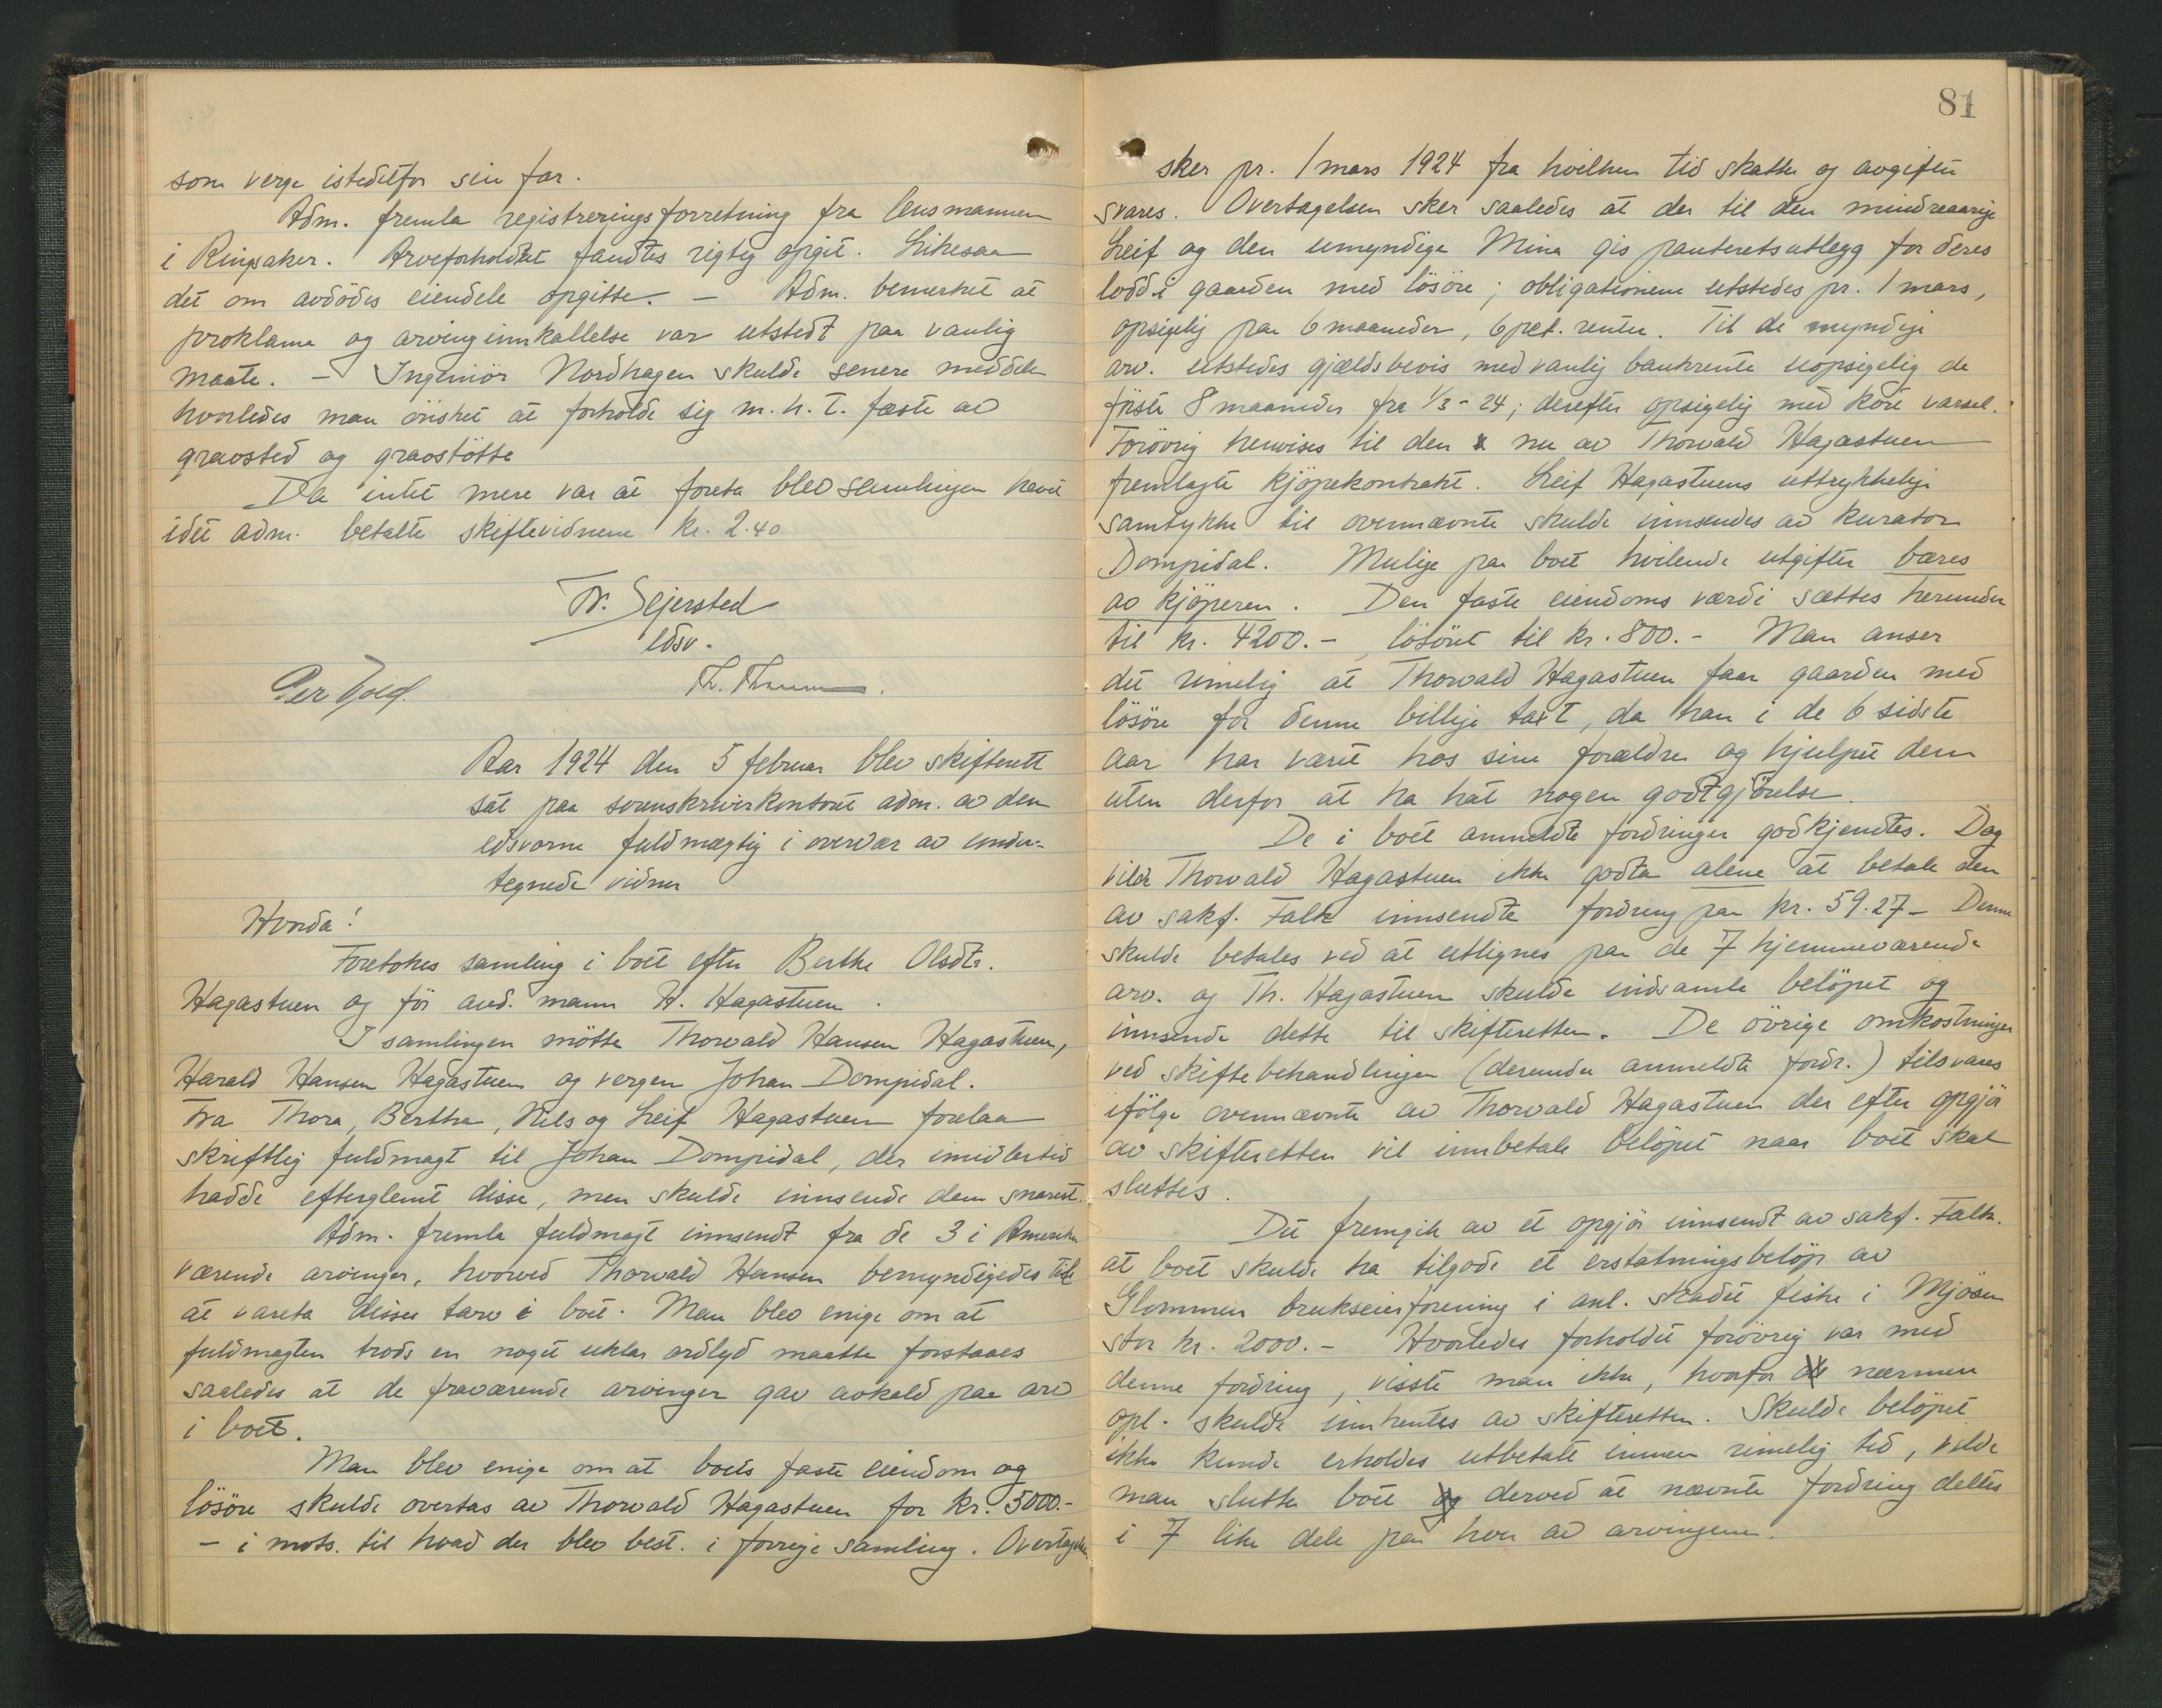 som verge istedetfor sin far.
Adm. fremla registreringsforretning fra lensmannen
i Ringsaker. Arveforholdet fandtes rigtig opgit. Likesaa
det om avdödes eiendele opgitte. – Adm. bemerket at
proklama og arvinginnkallelse var utstedt paa vanlig
maate. – Ingeniör Nordhagen skulde senere meddele
hvorledes man önsket at forholde sig m.h.t. fæste av
gravsted og gravstötte
Da intet mere var at foreta blev samlingen hævet
idet adm. betalte skiftevidnene kr. 2.40
Fr. Sejersted
edsv.
Per Vold.
Aar 1924 den 5 februar blev skifterett
sat paa sorenskriverkontoret adm. av den
edsvorne fuldmægtig i overvær av under-
tegnede vidner
Hvorda!
Foretokes samling i boet efter Berthe Olsdtr.
Hagastuen og för avd. mann H. Hagastuen.
I samlingen mötte Thorvald Hansen Hagastuen,
Harald Hansen Hagastuen og vergen Johan Dompidal.
Fra Thora, Bertha, Nils og Leif Hagastuen forelaa
skriftlig fuldmagt til Johan Dompidal, der imidlertid
hadde efterglemt disse, men skulde innsende dem snarest.
Adm. fremla fuldmagt innsendt fra de 3 i Amerika
værende arvinger, hvorved Thorvald Hansen bemyndigedes til
at vareta disses tarv i boet. Man blev enige om at
fuldmagten trods en noget uklar ordlyd maatte forstaaes
saaledes at de fraværende arvinger gav avkald paa arv
i boet.
Man blev enige om at boets faste eiendom og
lösöre skulde overtas av Thorvald Hagastuen for kr. 5000.-
– i mots. til hvad der blev best. i forrige samling. Overtagelsen
81
sker pr. 1 mars 1924 fra hvilken tid skatter og avgifter
svares. Overtagelsen sker saaledes at der til den mindreaarige
Leif og den umyndige Mina gis panteretsutlegg for deres
lodd i gaarden med lösöre; obligationene utstedes pr. 1 mars,
opsigelig paa 6 maaneder, 6 pct. rente. Til de myndige
arv. utstedes gjældsbevis med vanlig bankrente uopsigelig de
förste 8 maaneder fra 1/3 - 24; derefter opsigelig med kort varsel.
Forövrig henvises til den nu av Thorvald Hagastuen
fremlagte kjöpekontrakt. Leif Hagastuens uttrykkelige
samtykke til ovennævnte skulde innsendes av kurator
Dompidal. Mulige paa boet hvilende utgifter bæres
av kjöperen. Den faste eiendoms værdi sættes herunder
til kr. 4200.-, lösöret til kr. 800.- Man anser
det rimelig at Thorvald Hagastuen faar gaarden med
lösöre for denne billige takst, da han i de 6 sidste
aar har været hos sine forældre og hjulpet dem
uten derfor at ha hat nogen godtgjörelse.
De i boet anmeldte fordringer godkjendtes. Dog
vilde Thorvald Hagastuen ikke godta alene at betale den
av sakf. Falk innsendte fordring paa kr. 59.27 – Denne
skulde betales ved at utlignes paa de 7 hjemmeværende
arv. og Th. Hagastuen skulde indsamle belöpet og
innsende dette til skifteretten. De övrige omkostninger
ved skiftebehandlingen (derunder anmeldte fordr.) tilsvares
ifölge ovennævnte av Thorvald Hagastuen der efter opgjör
av skifteretten vil innbetale belöpet naar boet skal
sluttes.
Det fremgik av et opgjör innsendt av sakf. Falk.
at boet skulde ha tilgode et erstatningsbelöp av
Glommen brukseierforening i anl. skadet fiske i Mjösen
stor kr. 2000.- Hvorledes forholdet forövrig var med
denne fordring, visste man ikke, hvorfor nærmere
opl. skulde innhentes av skifteretten. Skulde belöpet
ikke kunde erholdes utbetalt innen rimelig tid, vilde
man slutte boet derved at nævnte fordring deltes
i 7 like dele paa hver av arvingene.